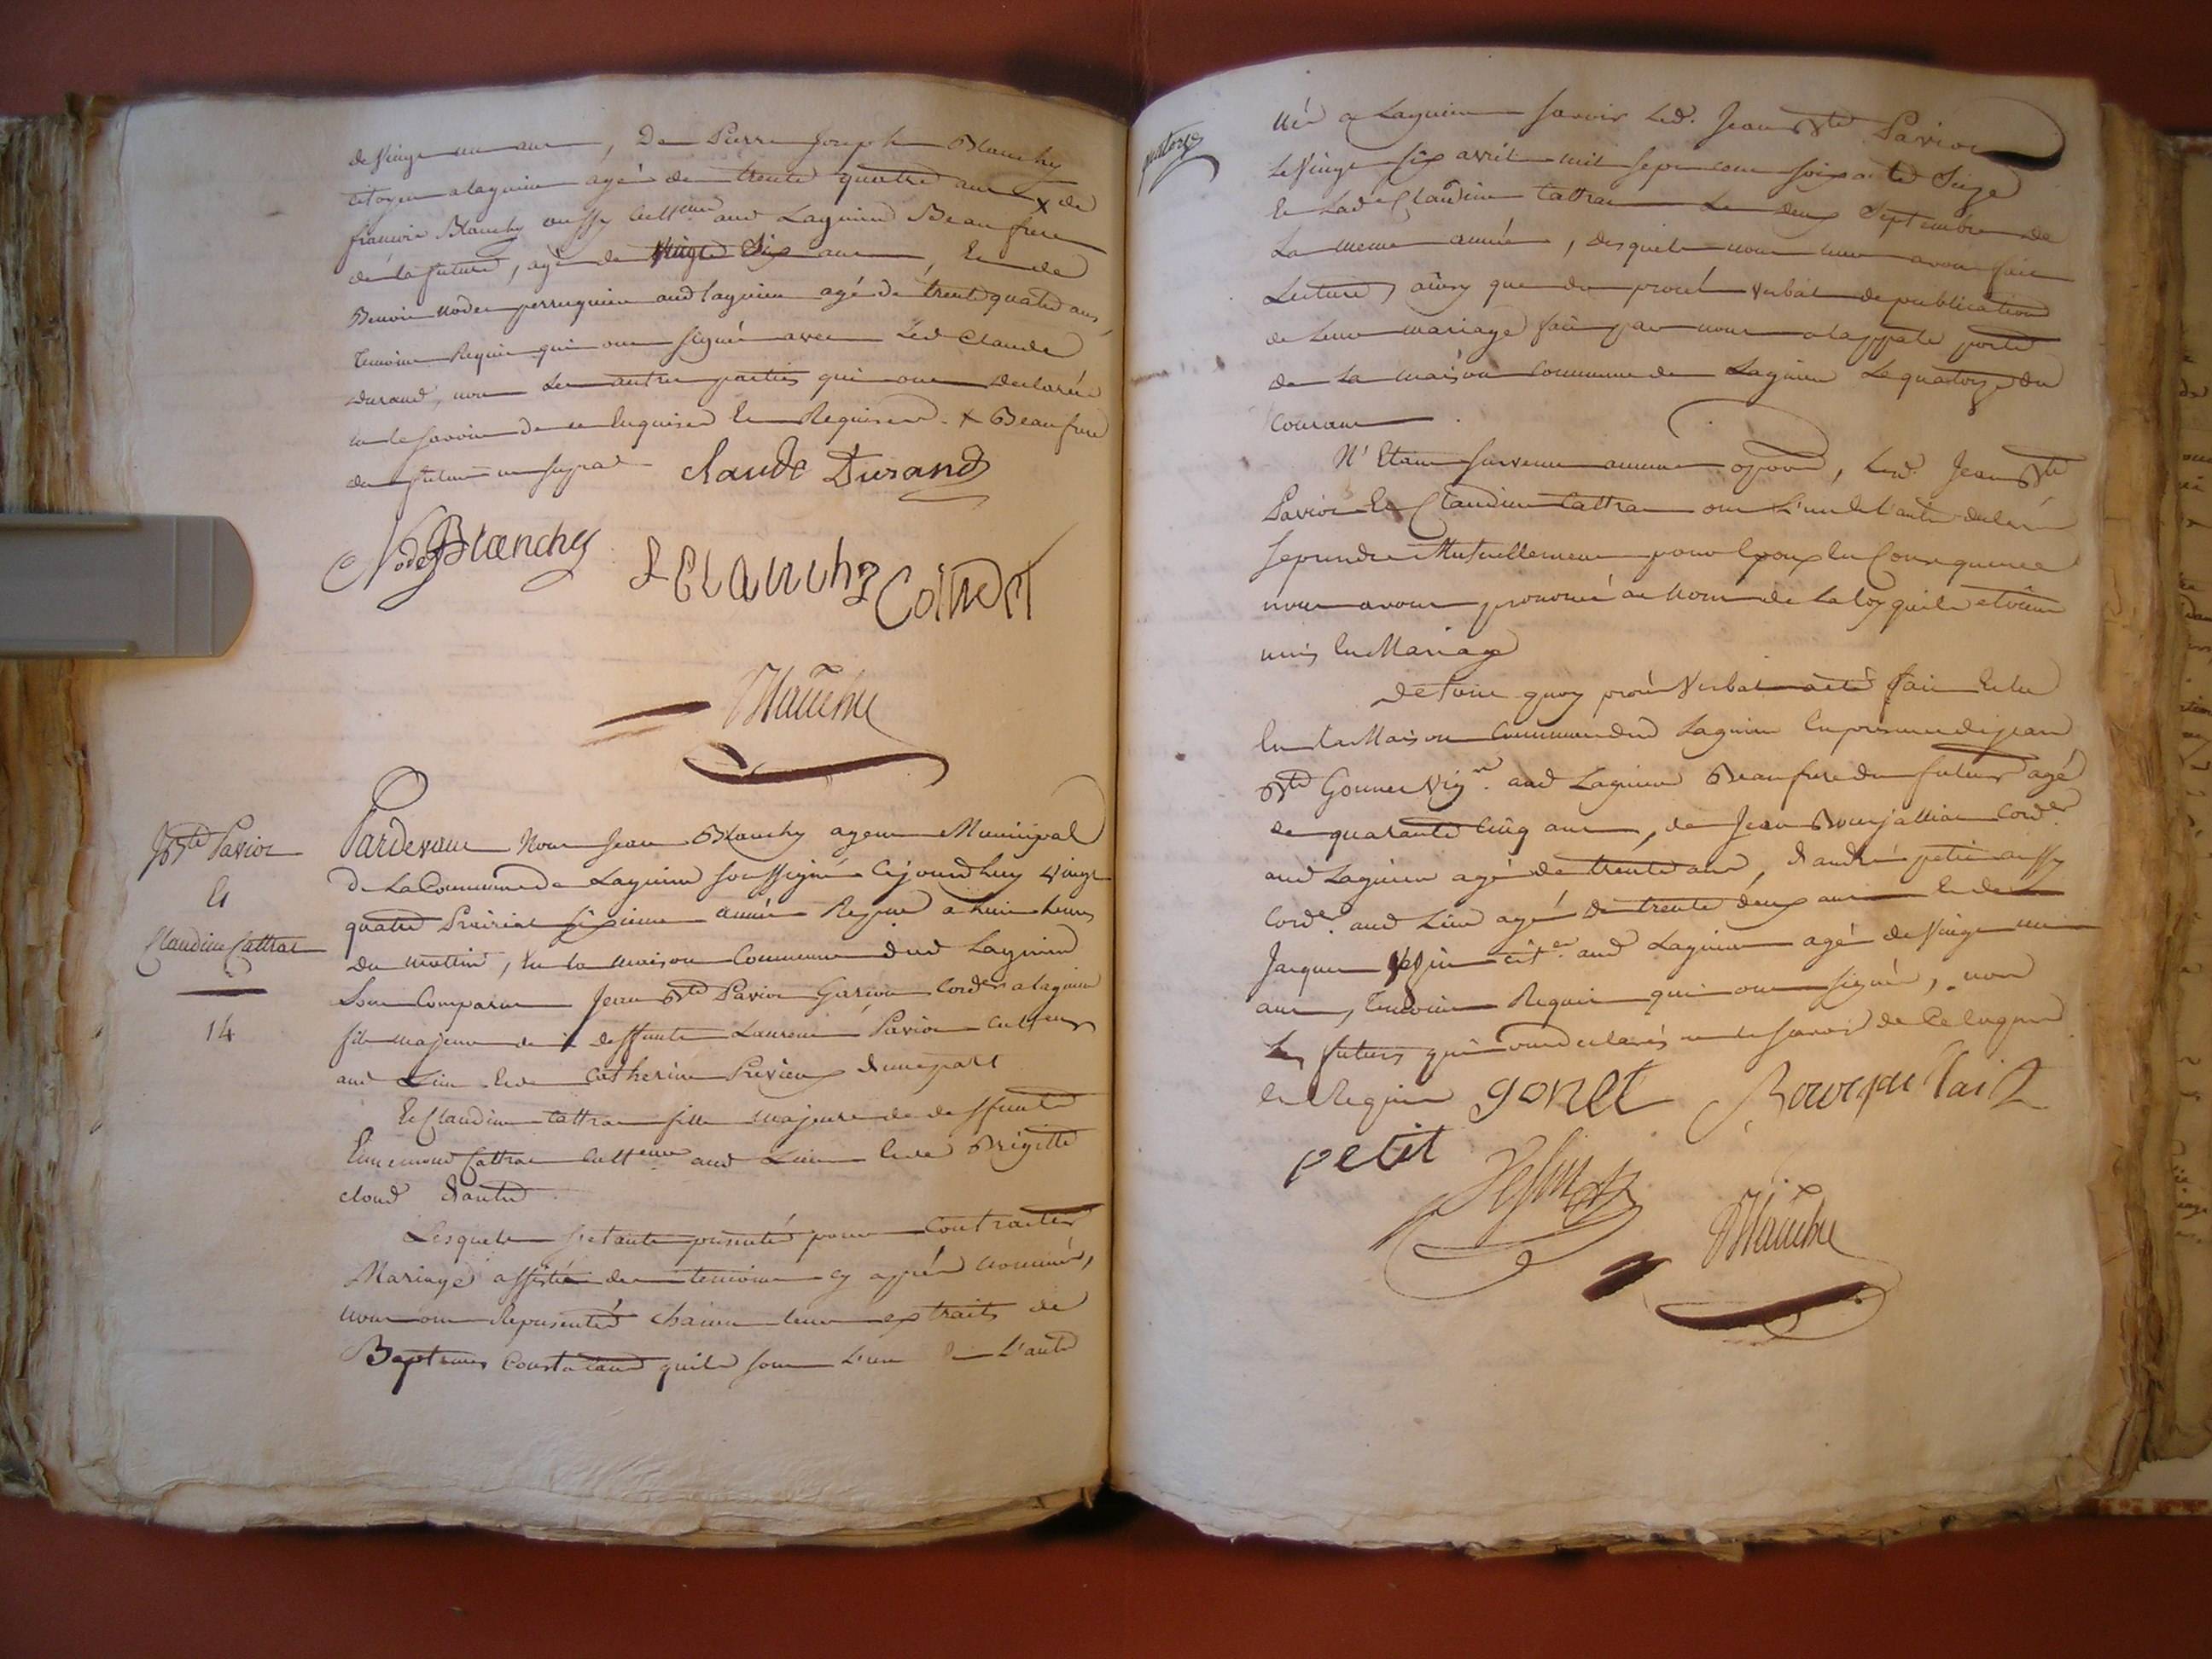 de Vingt un ans, De Pierre Joseph Blanchy
citoyen a lagnieu agé de trente quatre ans X de
francois Blanchy aussy Cultteur aud Lagnieu Beaufrere
de la future, agé de Vingt Six ans, Et de
Benoit Nodet perruquier aud lagnieu agé de trente quatre ans,
temoins Requis qui ont signé avec Led Claude
Durand, non Les autres parties qui ont Declaré
ne le savoir de ce Enquises Et Requises. X Beaufrere
du futur
claude Durand
Nodet Blanchy
Blanchy Coindet
Blanchy
J Bte Pavion
Et
Claudine Cattras
14
Pardevant Nous Jean Blanchy agent Municipal
de La Commune de Lagnieu soussigné Cejourdhuy Vingt
quatre Prairial sixieme année Repue a huit heures
du mattin, En la maison Commune dud Lagnieu
Sont Comparus Jean Bte Pavion Garcon Corder a lagnieu
fils majeur de deffunts Laurent Pavion Cultteur
aud Lieu Et de Catherine Prévieux d'une part
Et Claudine Cattras fille majeure de deffunts
Ennemond Cattras Cultteur aud Lieu Et de Brigitte
cloud d'autre
Lesquels s'etants presentés pour Contracter
Mariage assistés des temoins cy après nommés,
nous ont Representé chacun leurs extraits de
Baptemes Constatant quils sont L'un Et L'autre
quatorze
Nés a Lagnieu savoir Led. Jean Bte Pavion
Le Vingt six avril mil sept cent soixante Seize
Et Lade Claudine Cattras Le deux Septembre de
La meme année, desquels nous avons fait
Lecture, ainsy que du procés verbal de publication
de Leur mariage fait par nous a la ppale porte
de La maison Commune de Lagnieu Le quatorze du
Courant.
N'Etant survenu aucune oppon, Led. Jean Bte
Pavion Et Claudine Cattras ont L'un Et L'autre declaré
se prendre Mutuellement pour Epoux En Consequence
nous avons prononcé au Nom de La loy quils etoient
unis En Mariage
de tout quoy procès Verbal a été fait Et lu
En La Maison Commune dud Lagnieu En presence de jean
Bte Gonnet Vign. aud Lagnieu Beaufrere du futur agé
de quarante Cinq ans, de Jean Bourjaillat Corder
aud Lagnieu agé de trente ans, d'andré petit aussy
Corder. aud Lieu agé de trente deux ans Et de
Jacques cit.en aud Lagnieu agé de Vingt un
ans, temoins Requis qui ont signé, non
Les futurs qui ont declarés ne le savoir de Ce Enquis
Et Requis gonet Bourjaillait
petit
Blanchy